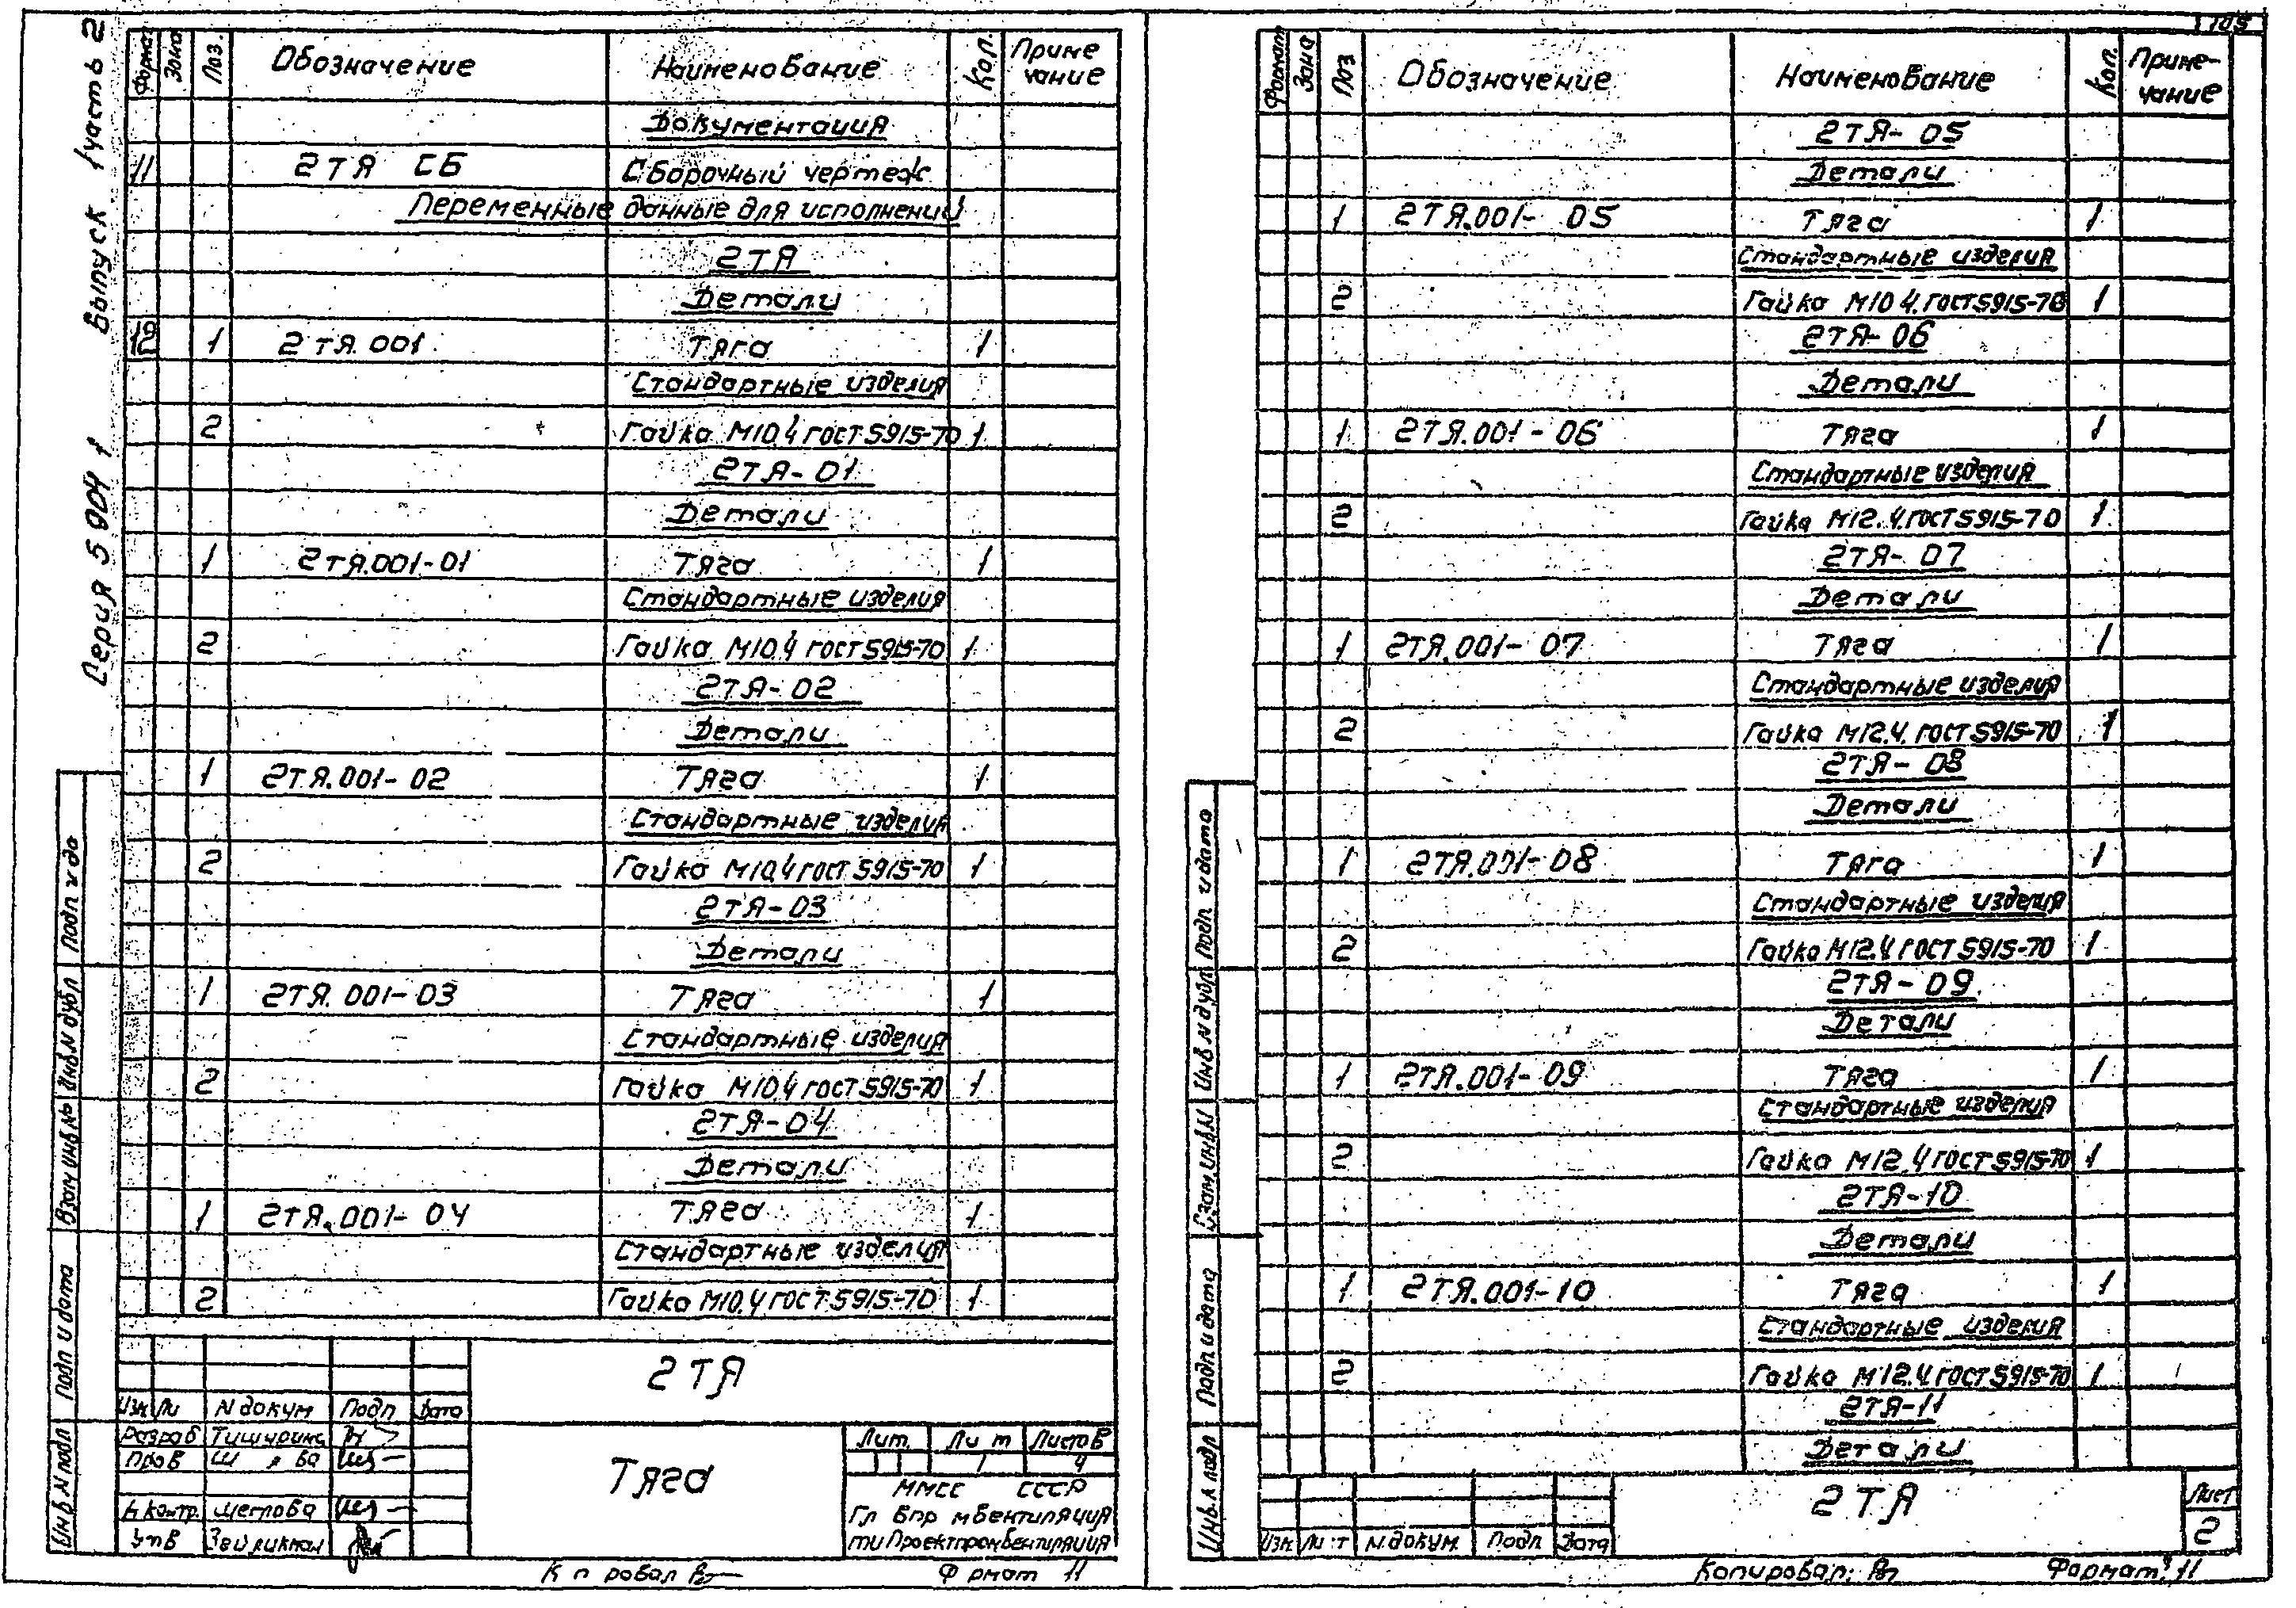 Серия 5 904 1 Выпуск 1 часть 2
Формат Зона Поз. Обозначение Наименование Кол. Приме чание
Документация
11 2ТЯ СБ Сборочный чертеж
Переменные данные для исполнений
2ТЯ
Детали
12 1 2ТЯ.001 Тяга 1
Стандартные изделия
2 Гайка М10.4 ГОСТ5915-70 1
2ТЯ-01
Детали
1 2ТЯ.001-01 Тяга 1
Стандартные изделия
2 Гайка М10.4 ГОСТ5915-70 1
2ТЯ-02
Детали
1 2ТЯ.001-02 Тяга 1
Стандартные изделия
2 Гайка М10.4 ГОСТ5915-70 1
2ТЯ-03
Детали
1 2ТЯ.001-03 Тяга 1
Стандартные изделия
2 Гайка М10.4 ГОСТ5915-70 1
2ТЯ-04
Детали
1 2ТЯ.001-04 Тяга 1
Стандартные изделия
2 Гайка М10.4 ГОСТ5915-70 1
Подп и да
Инв.N дубл
Взам инв №
Подп и дата
Инв N подл
2ТЯ
Изм Ли N докум Подп Дата
Разраб Тишурина
Пров
Н контр. Щеглова
Утв
Тяга
Лит. Ли т Листов
1 4
ММСС СССР
Гл впр мвентиляция
ти Проектпромвентиляция
К п ровал
Ф рмат 11
Формат Зона Поз Обозначение Наименование Кол. Приме-чание
2ТЯ-05
Детали
1 2ТЯ.001-05 Тяга 1
Стандартные изделия
2 Гайка М10.4.ГОСТ5915-70 1
2ТЯ-06
Детали
1 2ТЯ.001-06 Тяга 1
Стандартные изделия
2 Гайка М12.4.ГОСТ5915-70 1
2ТЯ-07
Детали
1 2ТЯ.001-07 Тяга 1
Стандартные изделия
2 Гайка М12.4.ГОСТ5915-70 1
2ТЯ-08
Детали
1 2ТЯ.001-08 Тяга 1
Стандартные изделия
2 Гайка М12.4 ГОСТ5915-70 1
2ТЯ-09
Детали
1 2ТЯ.001-09 Тяга 1
Стандартные изделия
2 Гайка М12.4 ГОСТ5915-70 1
2ТЯ-10
Детали
1 2ТЯ.001-10 Тяга 1
Стандартные изделия
2 Гайка М12.4.ГОСТ5915-70 1
2ТЯ-11
Детали
Подп идата
Инв N дубл
Взам.инв.N
Подп и дата
Инв.N подл
Изм. Ли т N.докум. Подп Дата
2ТЯ
Лист
2
Копировал:
Формат: 11